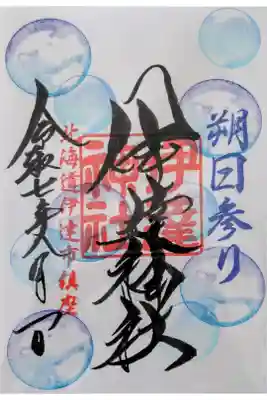 朔日参り
伊達神社
伊達神社
北海道伊達市鎮座
令和七年六月一日